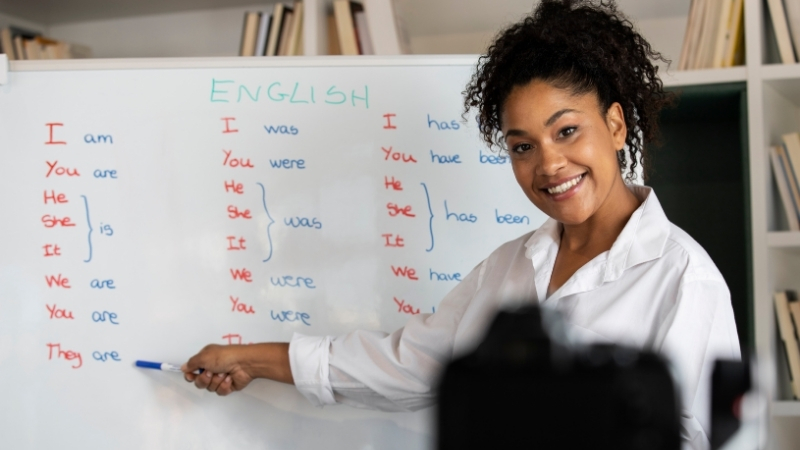 ENGLISH
I am
You are
He
She is
It
We are
You are
They are
I was
You were
He
She was
It
We were
You were
I has
You have
He
She has been
It
We have
You